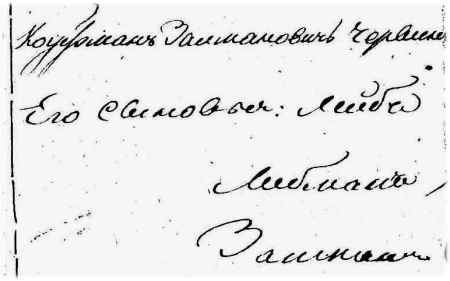 Кауфманъ Залмановичъ Червин
Его сыновья: Лейба
Либманъ,
Залманъ